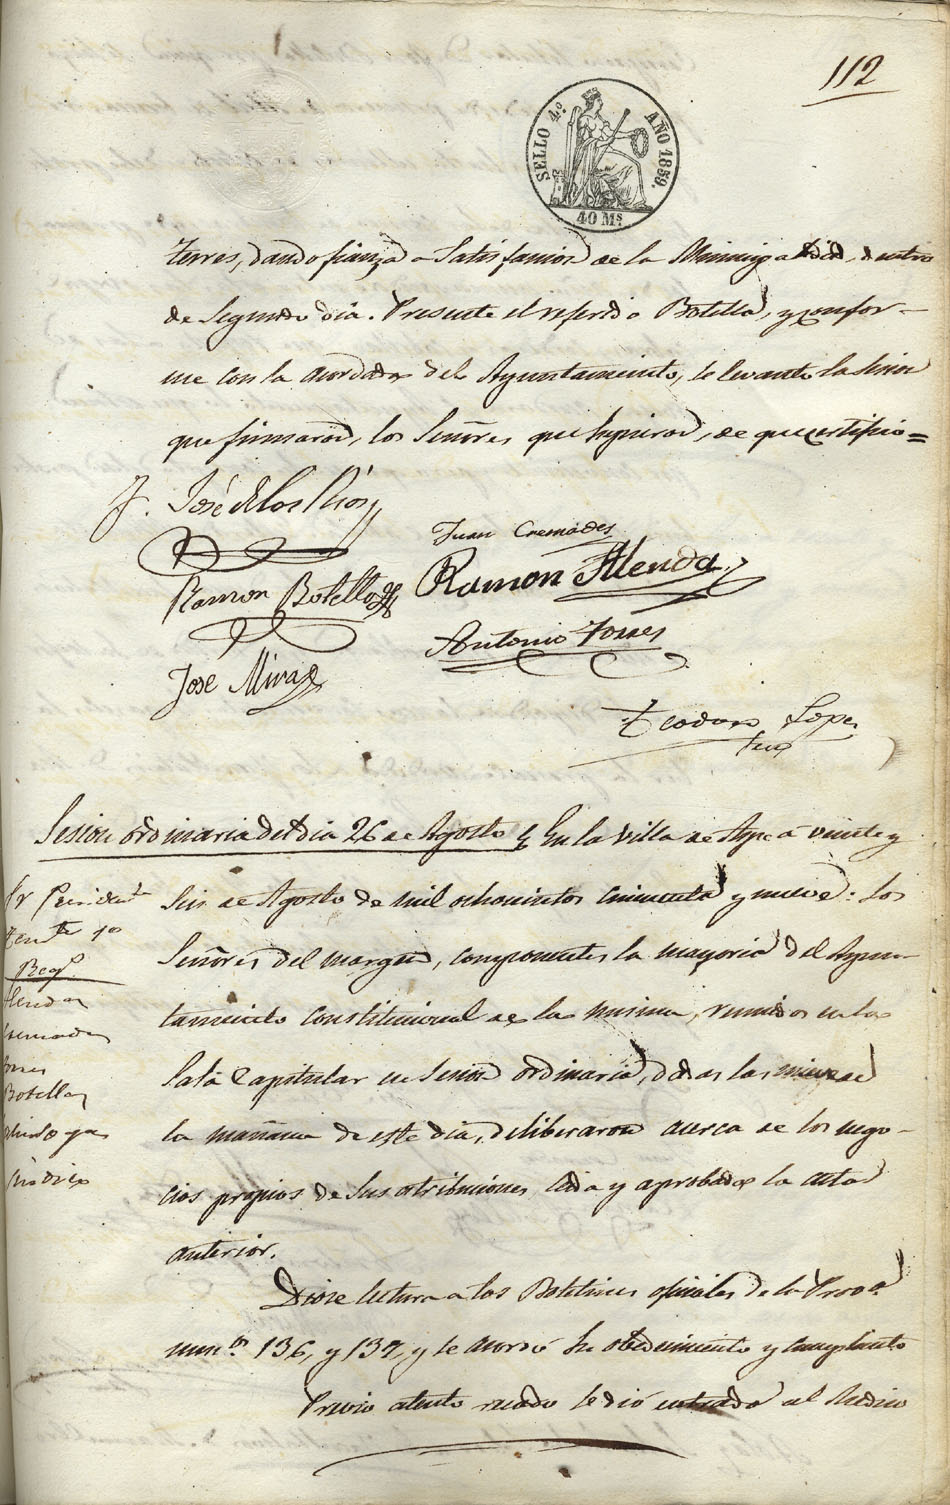 112
SELLO 4º AÑO 1859.
40 Ms
terres, dando fianza a satisfacion de la Municipalidad, dentro
de segundo dia. Presente el referido Botella, y confor-
me con lo acordado del Ayuntamiento, se levantó la sesion
que firmaron, los Señores que supieron, de que certifico=
J. José de los Rios
Juan Cremades
Ramon Botella
Ramon Alenda
Antonio Torres
José Mira
Teodoro Lopez
Sesion ordinaria del dia 26 de Agosto
En la villa de Aspe á veinte y
seis de Agosto de mil ochocientos cincuenta y nueve: Los
Señores del margen, componentes la mayoria del Ayun-
tamiento constitucional de la misma, reunidos en la
Sala Capitular en sesion ordinaria, dadas las nueve de
la mañana de este dia, deliberaron acerca de los nego-
cios propios de sus atribuciones, leida y aprobada la acta
anterior.
Sr President
Tente 1º
Regs
Alenda
Cremades
Torres
Botella
Sindico
Diose lectura a los Boletines oficiales de la Prova
numos 136, y 137, y se acordó su obedecimiento y cumplimto
Previo atento recado se dió entrada al Medico